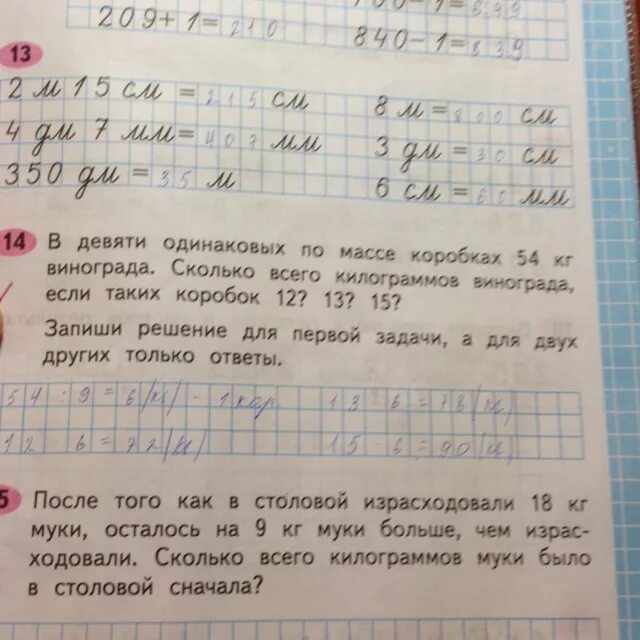 700-1=699
209+1=210
840-1=839
13
2 м 15 см = 215 см
8 м = 800 см
4 дм 7 мм = 407 мм
3 дм = 30 см
350 дм = 35 м
6 см = 60 мм
14 В девяти одинаковых по массе коробках 54 кг
винограда. Сколько всего килограммов винограда,
если таких коробок 12? 13? 15?
Запиши решение для первой задачи, а для двух
других только ответы.
54 : 9 = 6 (кг) - 1 кор.
13 · 6 = 78 (кг)
12 · 6 = 72 (кг)
15 · 6 = 90 (кг)
5 После того как в столовой израсходовали 18 кг
муки, осталось на 9 кг муки больше, чем израс-
ходовали. Сколько всего килограммов муки было
в столовой сначала?